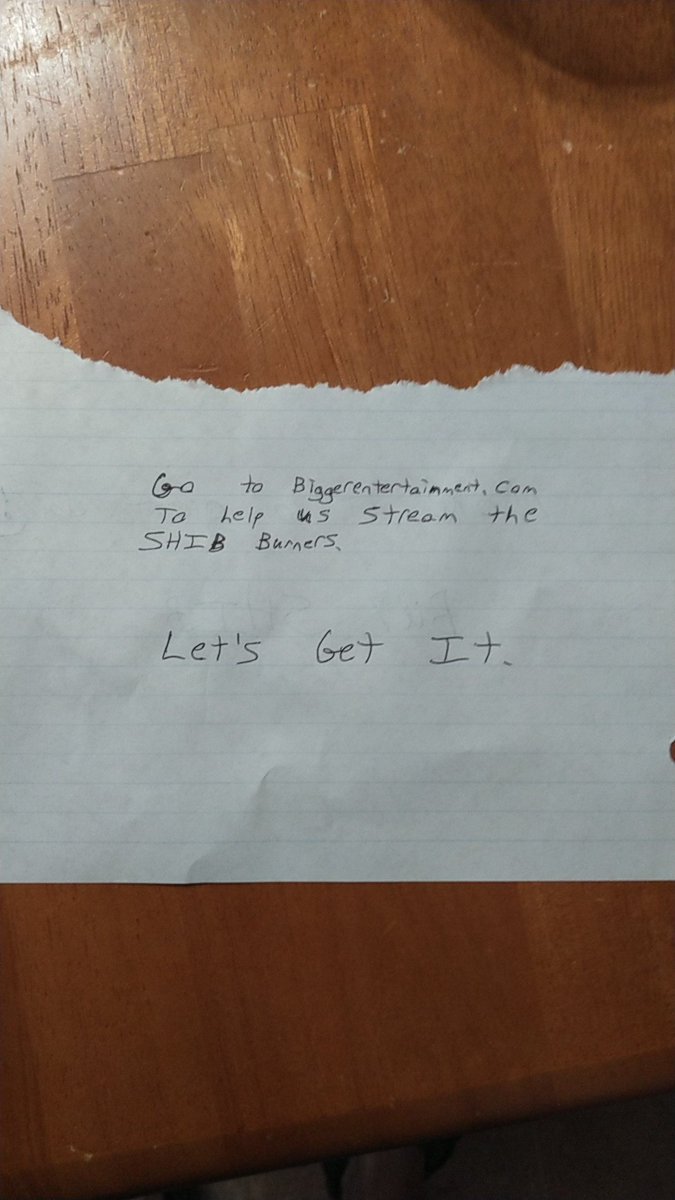 Go to Biggerentertainment.com
To help us Stream the
SHIB Burners.
Let's Get It.